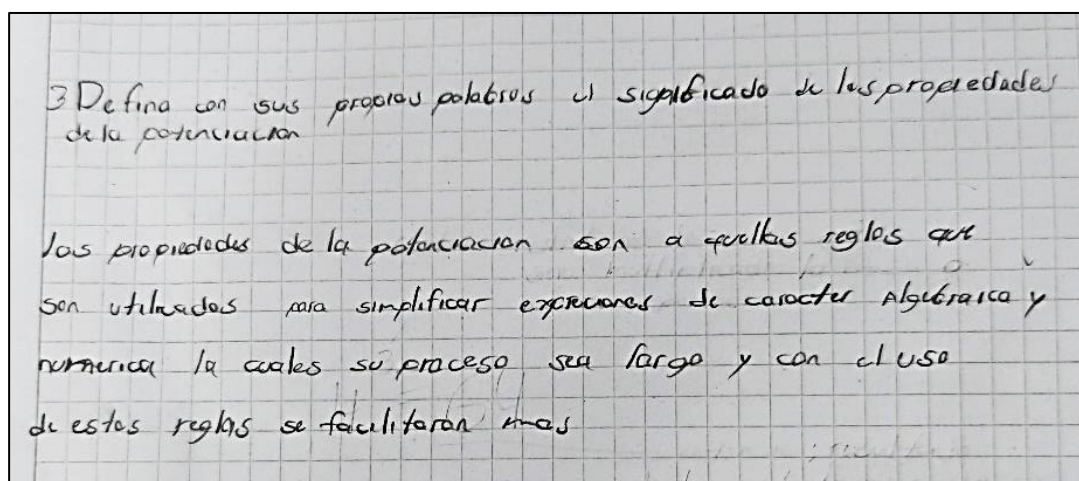 3 Defina con sus propias palabras el significado de las propiedades
de la potenciacion
las propiedades de la potenciacion son a quellas reglas que
son utilizadas para simplificar expreciones de caracter Algebraica y
numerica la cuales su proceso sea largo y con el uso
de estas reglas se facilitaran mas